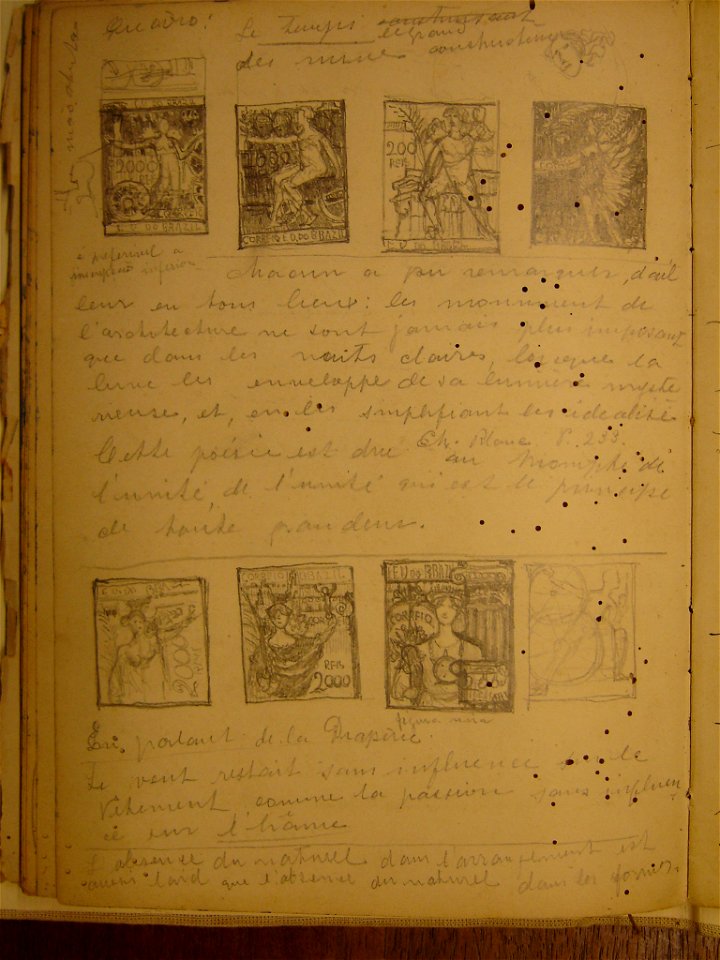 Le temps construisant
le grand
des ruines constructeur
E.U. DO BRAZIL
2000
CORREIO
E.U. DO BRAZIL
2000
CORREIO E.U. DO BRAZIL
200
REIS
E.U. DO BRAZIL
é preferivel a
inferior
Chacun a pu remarquer, d'ail
leur en tous lieux: les monument de
l'architecture ne sont jamais plus imposant
que dans les nuits claires, lorsque la
lune les enveloppe de sa lumière mysté
rieuse, et, en les simplifiant les idéalise
Ch. Blanc P. 233.
Cette poésie est due au triomphe de
l'unité, de l'unité qui est le principe
de toute grandeur.
E.U. DO BRAZIL
2000
CORREIO BRAZIL
REIS
2000
E.U. DO BRAZIL
CORREIO
figura
En parlant de la Draperie.
Le vent restait sans influence sur le
Vêtement comme la passion sans influen
ce sur l'hâme
L'absence du naturel dans l'arrangement est
aussi laid que l'absence du naturel dans les formes.